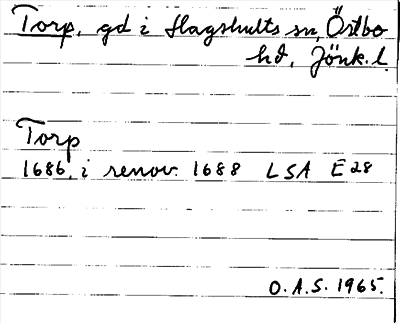 Torp, gd i Hagshults sn, Östbo
hd, Jönk. l.
Torp
1686, i renov. 1688 LSA E 28
O.A.S. 1965.